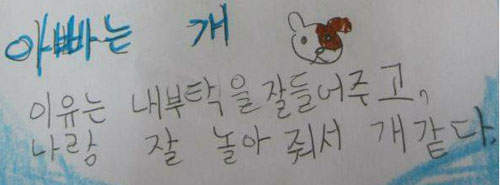 아빠는 개
이유는 내부탁을 잘들어주고,
나랑 잘 놀아 줘서 개같다.